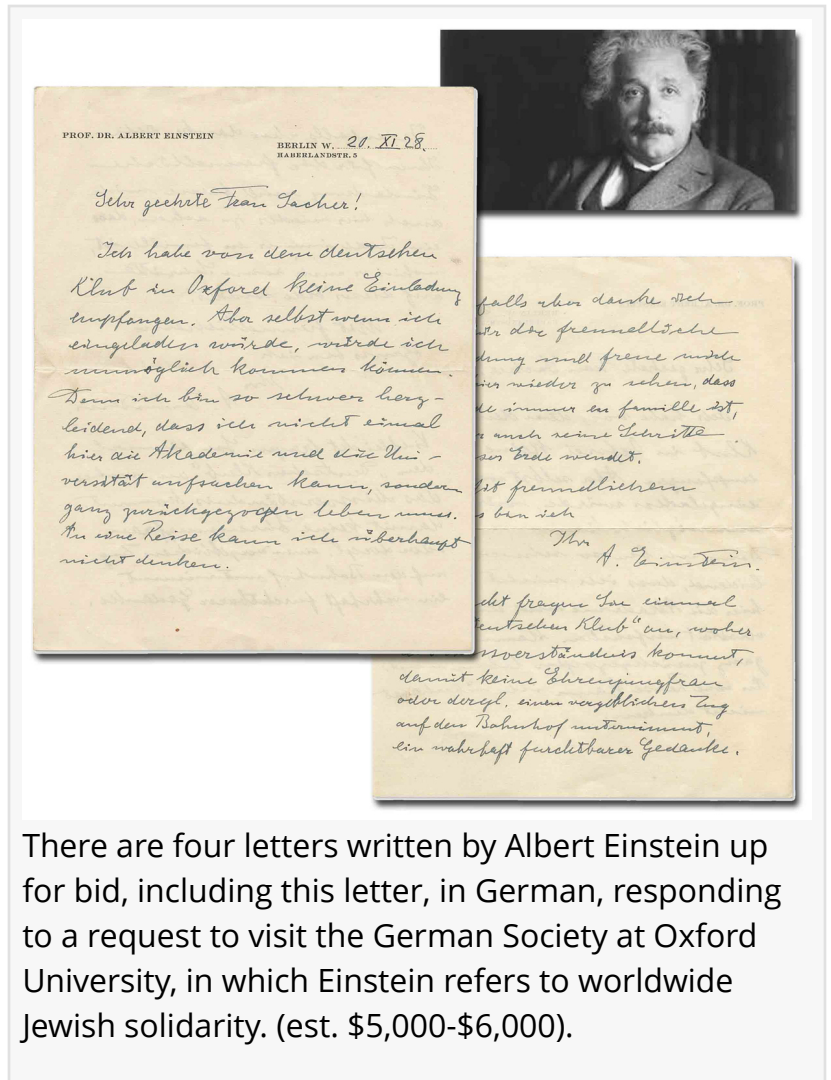 PROF. DR. ALBERT EINSTEIN
BERLIN W. 20. XI 28.
HABERLANDSTR. 5
Sehr geehrte Frau Sacher!
Ich habe von dem deutschen
Klub in Oxford keine Einladung
empfangen. Aber selbst wenn ich
eingeladen würde, würde ich
unmöglich kommen können.
Denn ich bin so schwer herz-
leidend, dass ich nicht einmal
hier die Akademie und die Uni-
versität aufsuchen kann, sondern
ganz zurückgezogen leben muss.
An eine Reise kann ich überhaupt
nicht denken.
falls aber danke ich
die freundliche
dung und freue mich
wieder zu sehen, dass
de immer en famille ist,
auch seine Schritte
ser Erde wendet.
it freundlichem
s bin ich
Ihr
A. Einstein.
cht fragen Sie einmal
eutschen Klub" an, woher
ssverständnis kommt,
damit keine Ehrenjungfrau
oder dergl. einen vergeblichen Zug
auf den Bahnhof unternimmt,
ein wahrhaft furchtbarer Gedanke.
There are four letters written by Albert Einstein up
for bid, including this letter, in German, responding
to a request to visit the German Society at Oxford
University, in which Einstein refers to worldwide
Jewish solidarity. (est. $5,000-$6,000).